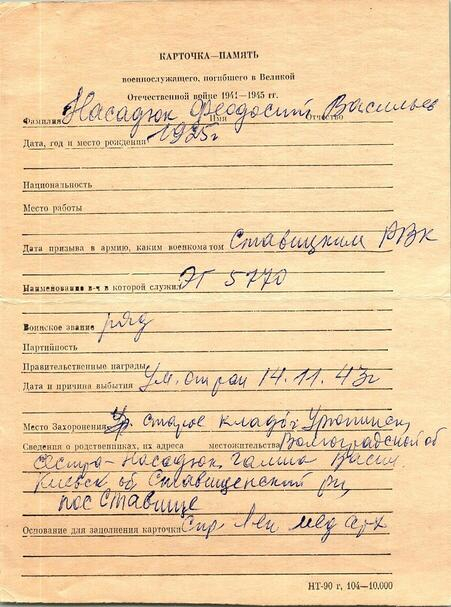 КАРТОЧКА—ПАМЯТЬ
военнослужащего, погибшего в Великой
Отечественной войне 1941—1945 гг.
Фамилия Насадюк Имя Феодосий Отчество Васильев
Дата, год и место рождения 1925г
Национальность
Место работы
Дата призыва в армию, каким военкоматом Ставицким РВК
Наименование в-ч в которой служил ЭГ 5770
Воинское звание ряд
Партийность
Правительственные награды
Дата и причина выбытия Ум. от ран 14.11.43г
Место Захоронения старое кладб г Урюпинск,
Сведения о родственниках, их адреса местожительства Волгоградской об
Сестра-Насадюк Галина Васил.
Киевск об Ставищенский рн,
пос Ставище
Основание для заполнения карточки Спр Лен мед арх
НТ-90 г, 104—10.000